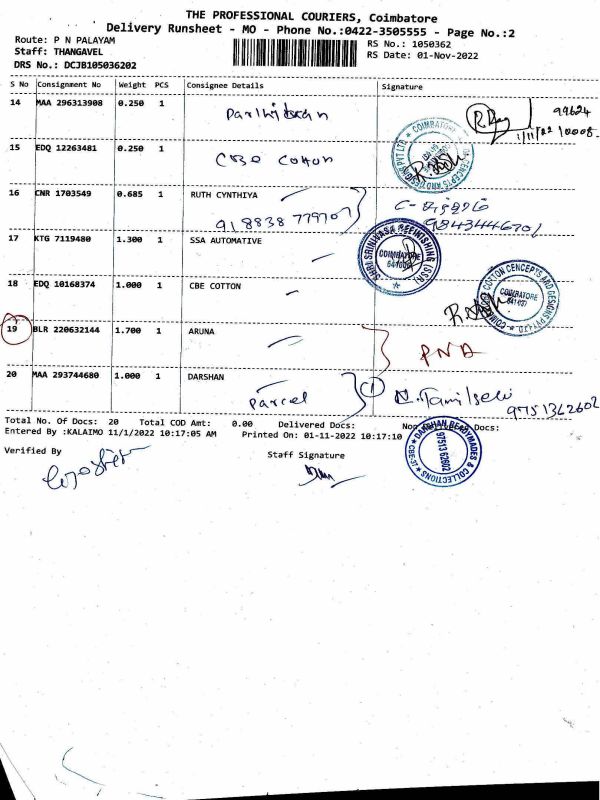 THE PROFESSIONAL COURIERS, Coimbatore
Delivery Runsheet - MO - Phone No.:0422-3505555 - Page No.:2
Route: P N PALAYAM
RS No.: 1050362
Staff: THANGAVEL
RS Date: 01-Nov-2022
DRS No.: DCJB105036202
S No Consignment No Weight PCS Consignee Details Signature
14 MAA 296313908 0.250 1
99624
1/11/22
15 EDQ 12263481 0.250 1 CBE Cotton
16 CNR 1703549 0.685 1 RUTH CYNTHIYA
91 8838 779707
9843446701
17 KTG 7119480 1.300 1 SSA AUTOMATIVE
SHRI SRINIVASA REFINISHING (SSR)
COIMBATORE
18 EDQ 10168374 1.000 1 CBE COTTON
COIMBATORE COTTON CENCEPTS AND DESIGNS PVT LTD
COIMBATORE
641 037
19 BLR 220632144 1.700 1 ARUNA
PNA
20 MAA 293744680 1.000 1 DARSHAN
Parcel
1
N. Tamilselvi
9751362602
Total No. Of Docs: 20 Total COD Amt: 0.00 Delivered Docs: Docs:
Entered By :KALAIMO 11/1/2022 10:17:05 AM Printed On: 01-11-2022 10:17:10
DARSHAN READYMADES & COLLECTIONS
97513 62602
CBE-37
Verified By
Staff Signature